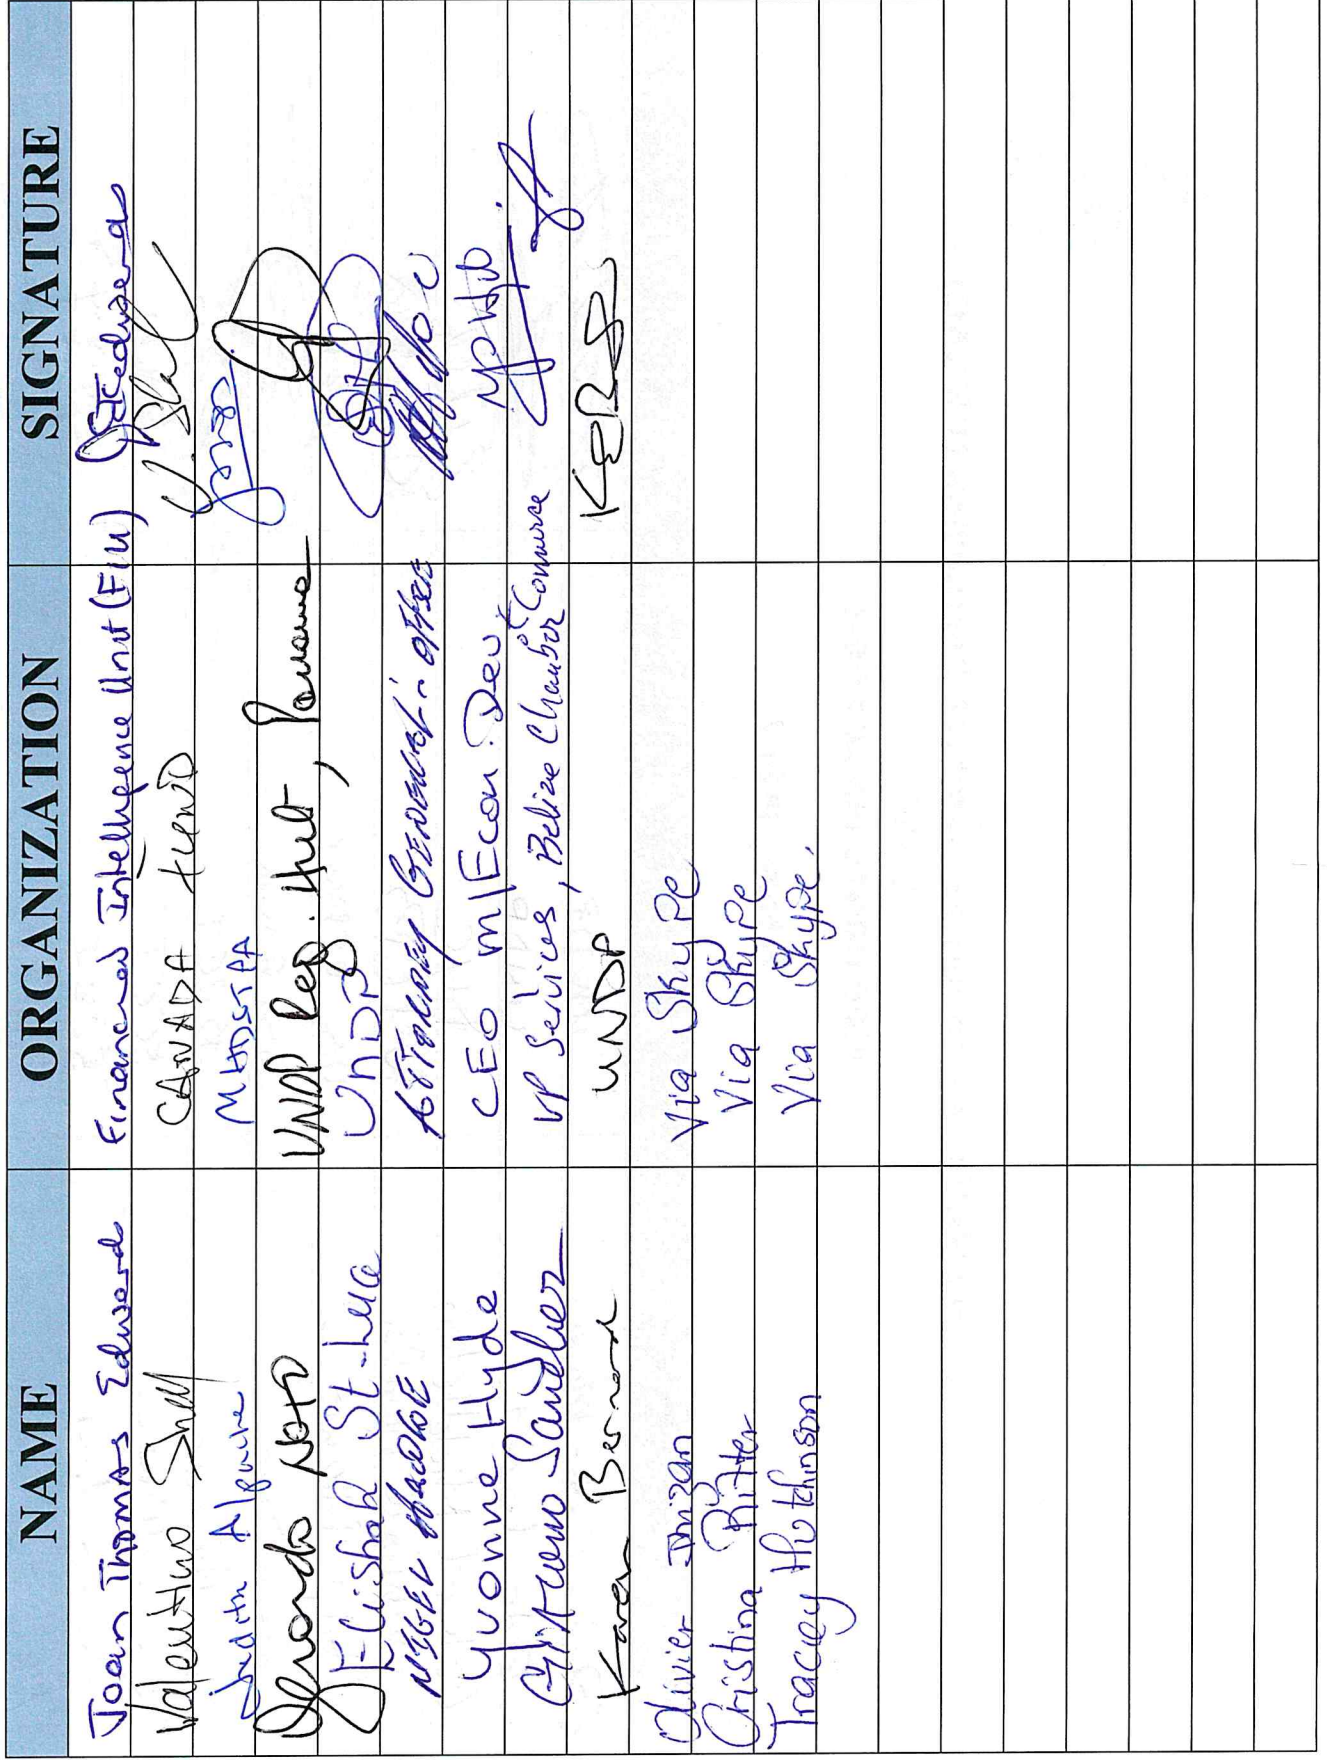 NAME ORGANIZATION SIGNATURE
Joan Thomas Edwards Financial Intelligence Unit (FIU)
Valentino Shal CANADA FUND V. Shal
Judith Alpuche MHDSTPA
Gerardo Noto UNDP Reg. Hub, Panama
Elisha St-Luce UNDP
NIGEL ATTORNEY GENERAL'S OFFICE
Yvonne Hyde CEO M/Econ. Dev. YSHyde
VP Services, Belize Chamber of Commerce
Karen Bernard UNDP
Olivier Via Skype
Cristina Ritter Via Skype
Tracey Hutchinson Via Skype.